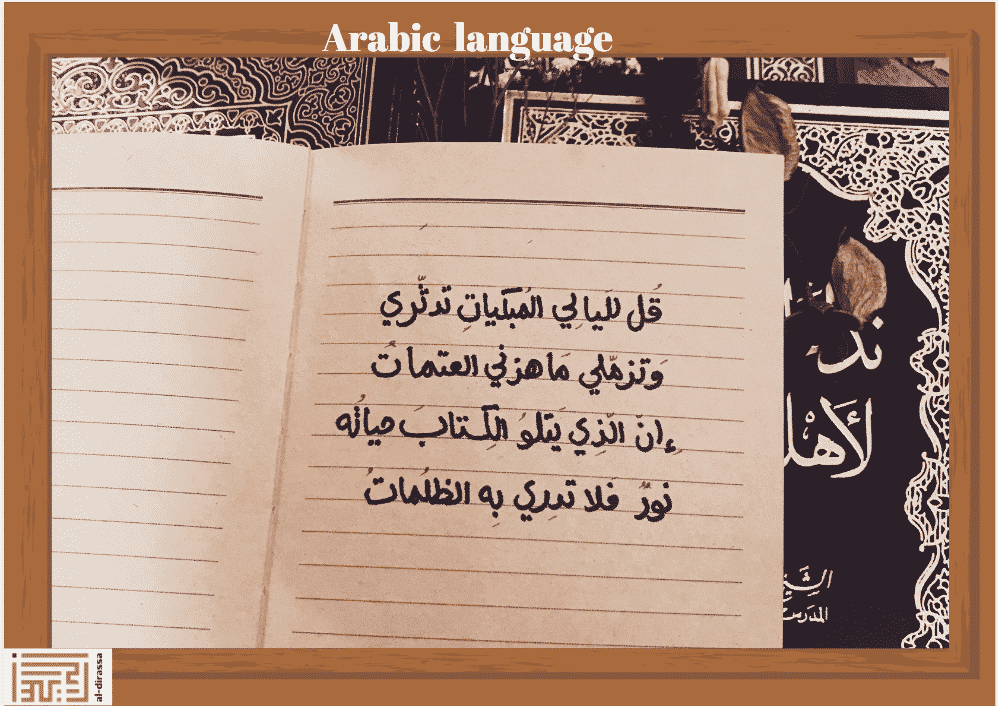 Arabic language
قُل للَيالِي المُبكَياتِ تدثّري
وَتزمّلي مَا هزني العتمات
إنّ الّذِي يَتلوُ الكِتابَ حياتُه
نورٌ فلا تدرِي بِه الظلُمَاتُ
الشَّيخ
al-dirassa